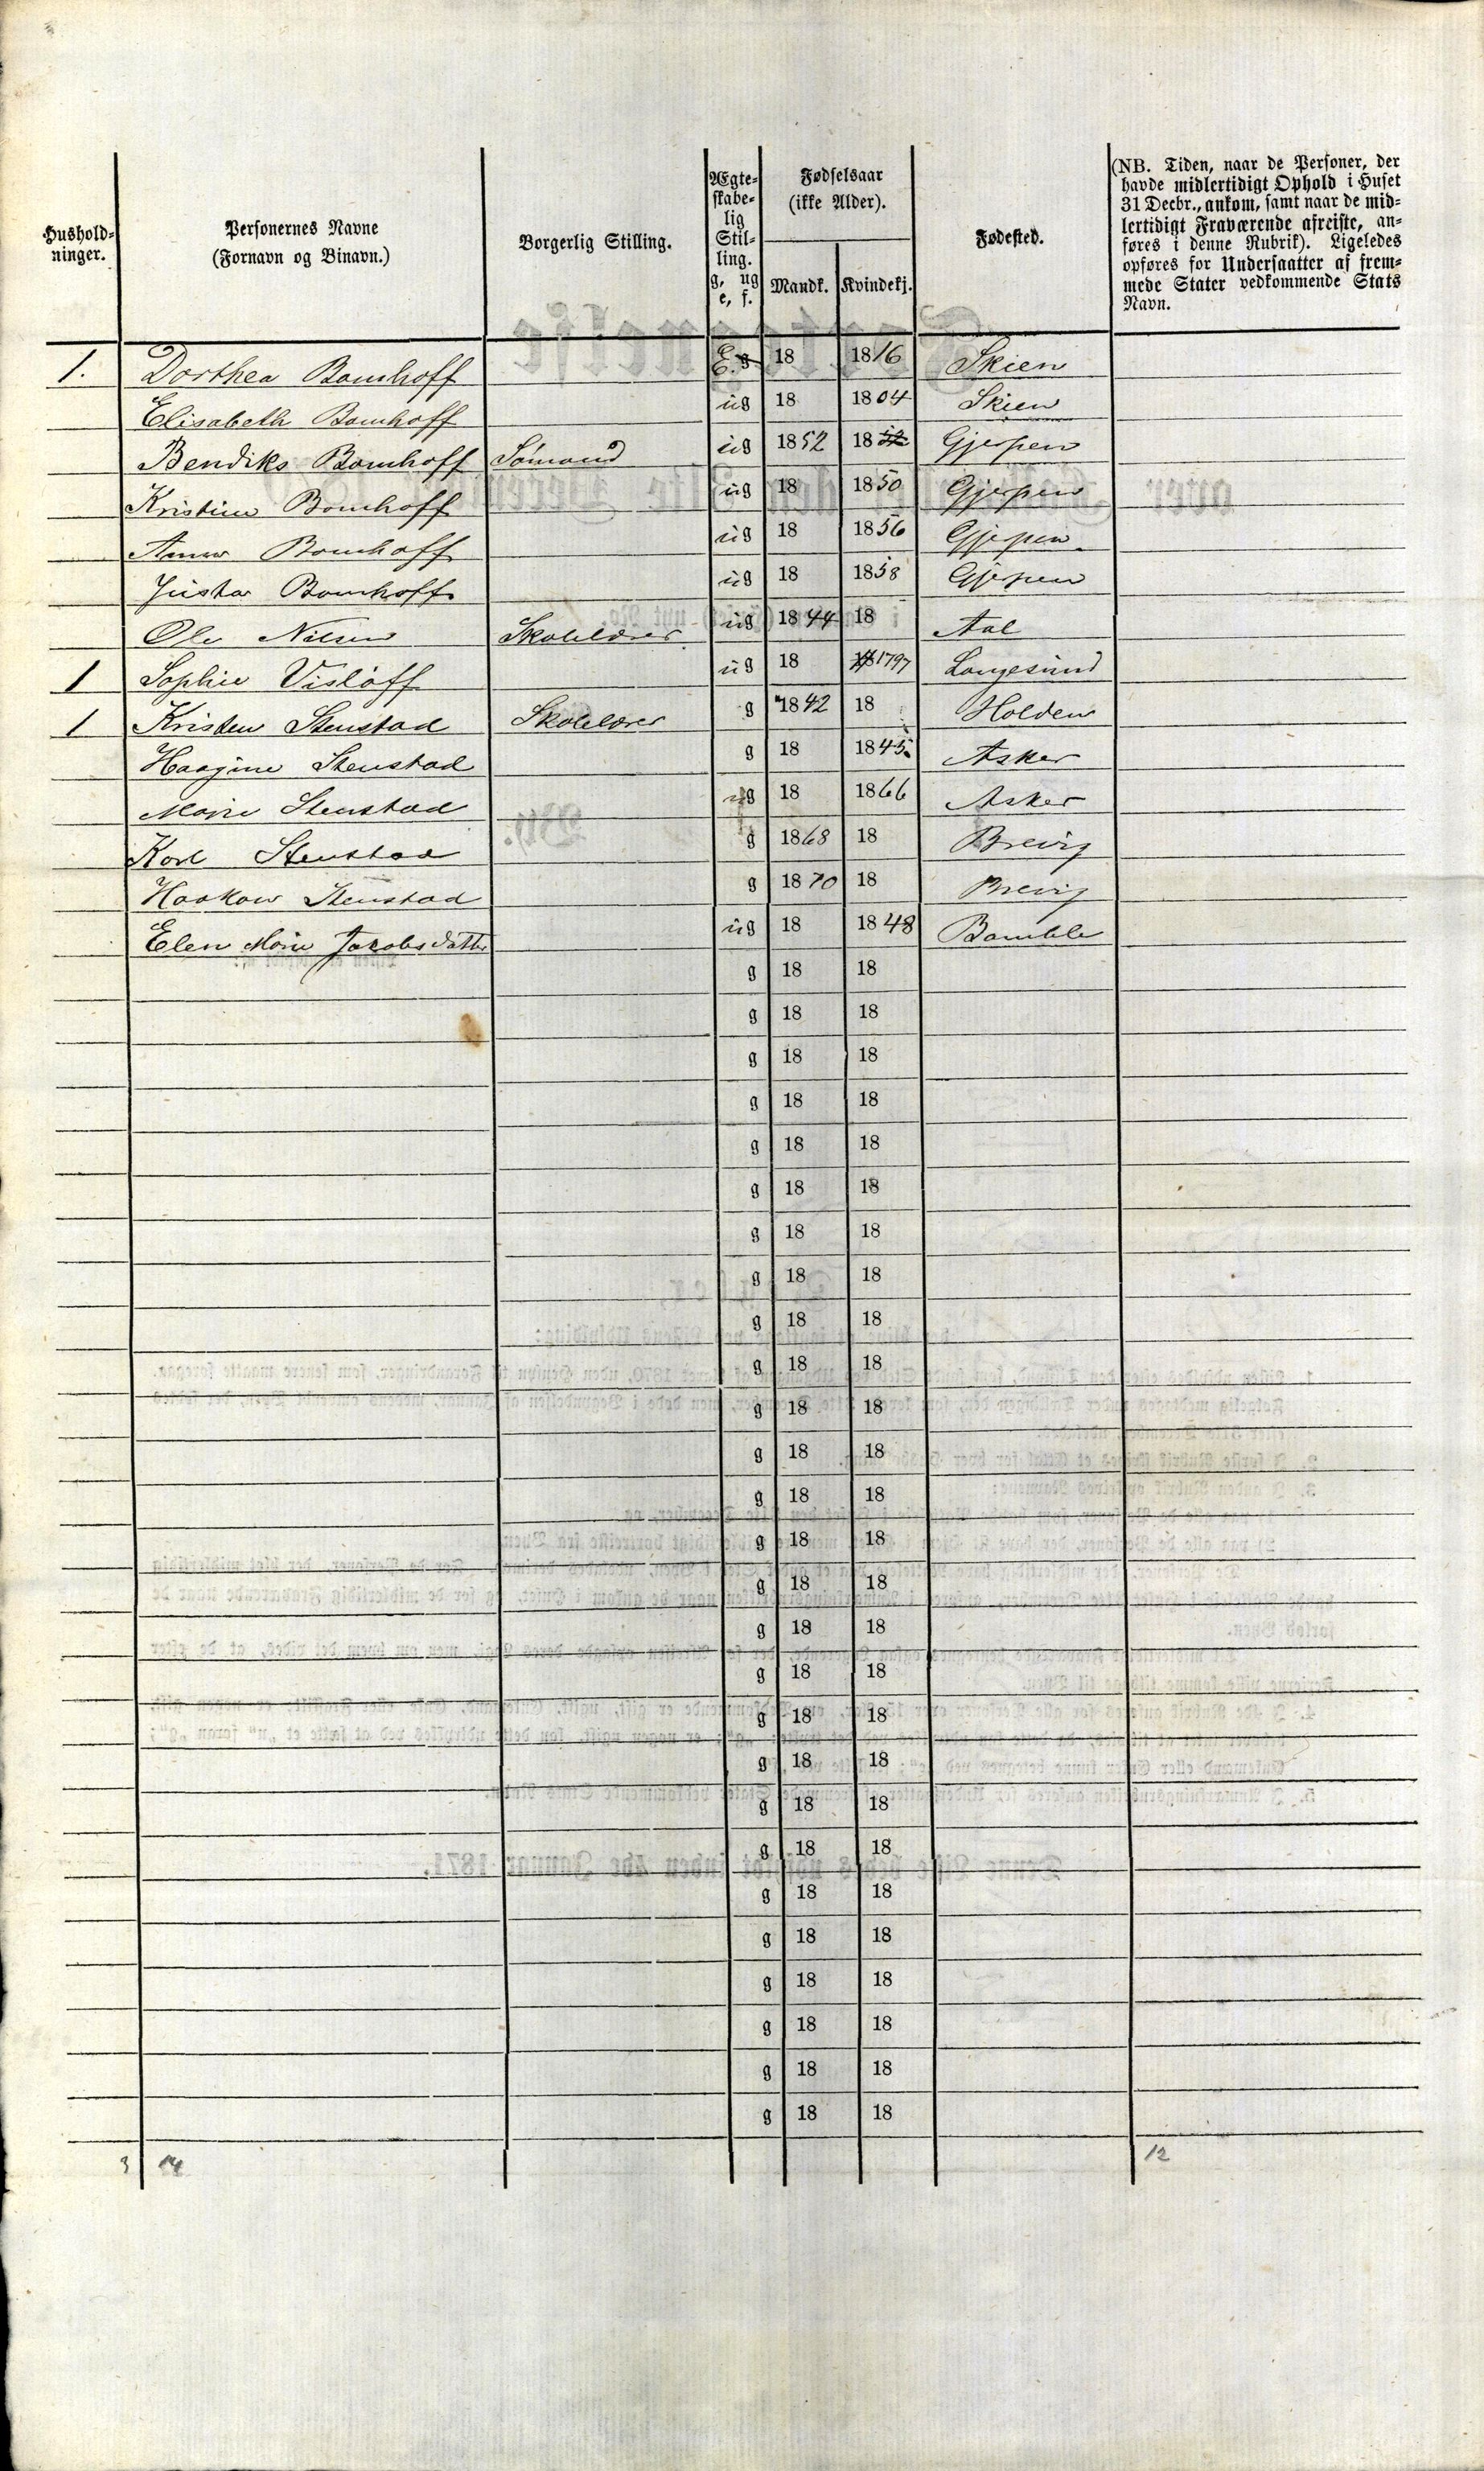 Hushold-
ninger.
Personernes Navne
(Fornavn og Binavn.)
Borgerlig Stilling.
Ægte-
skabe-
lig
Stil-
ling.
g, ug
e, f.
Fødselsaar
(ikke Alder).
Mandk. Kvindekj.
Fødested.
(NB. Tiden, naar de Personer, der
havde midlertidigt Ophold i Huset
31 Decbr., ankom, samt naar de mid-
lertidigt Fraværende afreiste, an-
føres i denne Rubrik). Ligeledes
opføres for Undersaatter af frem-
mede Stater vedkommende Stats
Navn.
1. Dorthea Bomhoff E. g 18 1816 Skien
Elisabeth Bomhoff ug 18 1804 Skien
Bendiks Bomhoff Sømand ug 1852 1852 Gjerpen
Kristine Bomhoff ug 18 1850 Gjerpen
Anna Bomhoff ug 18 1856 Gjerpen
Bomhoff ug 18 1858 Gjerpen
Ole Nilsen Skolelærer ug 1844 18 Aal
1 Sophie Visløff ug 18 1797 Langesund
1 Kristen Stenstad Skolelærer g 1842 18 Holden
Haagine Stenstad g 18 1845 Asker
Marie Stenstad ug 18 1866 Asker
Karl Stenstad g 1868 18 Brevig
Haakon Stenstad g 1870 18 Brevig
Elen Marie Jakobsdatter ug 18 1848 Bamble
g 18 18
g 18 18
g 18 18
g 18 18
g 18 18
g 18 18
g 18 18
g 18 18
g 18 18
g 18 18
g 18 18
g 18 18
g 18 18
g 18 18
g 18 18
g 18 18
g 18 18
g 18 18
g 18 18
g 18 18
g 18 18
g 18 18
g 18 18
g 18 18
g 18 18
g 18 18
g 18 18
3 14 12